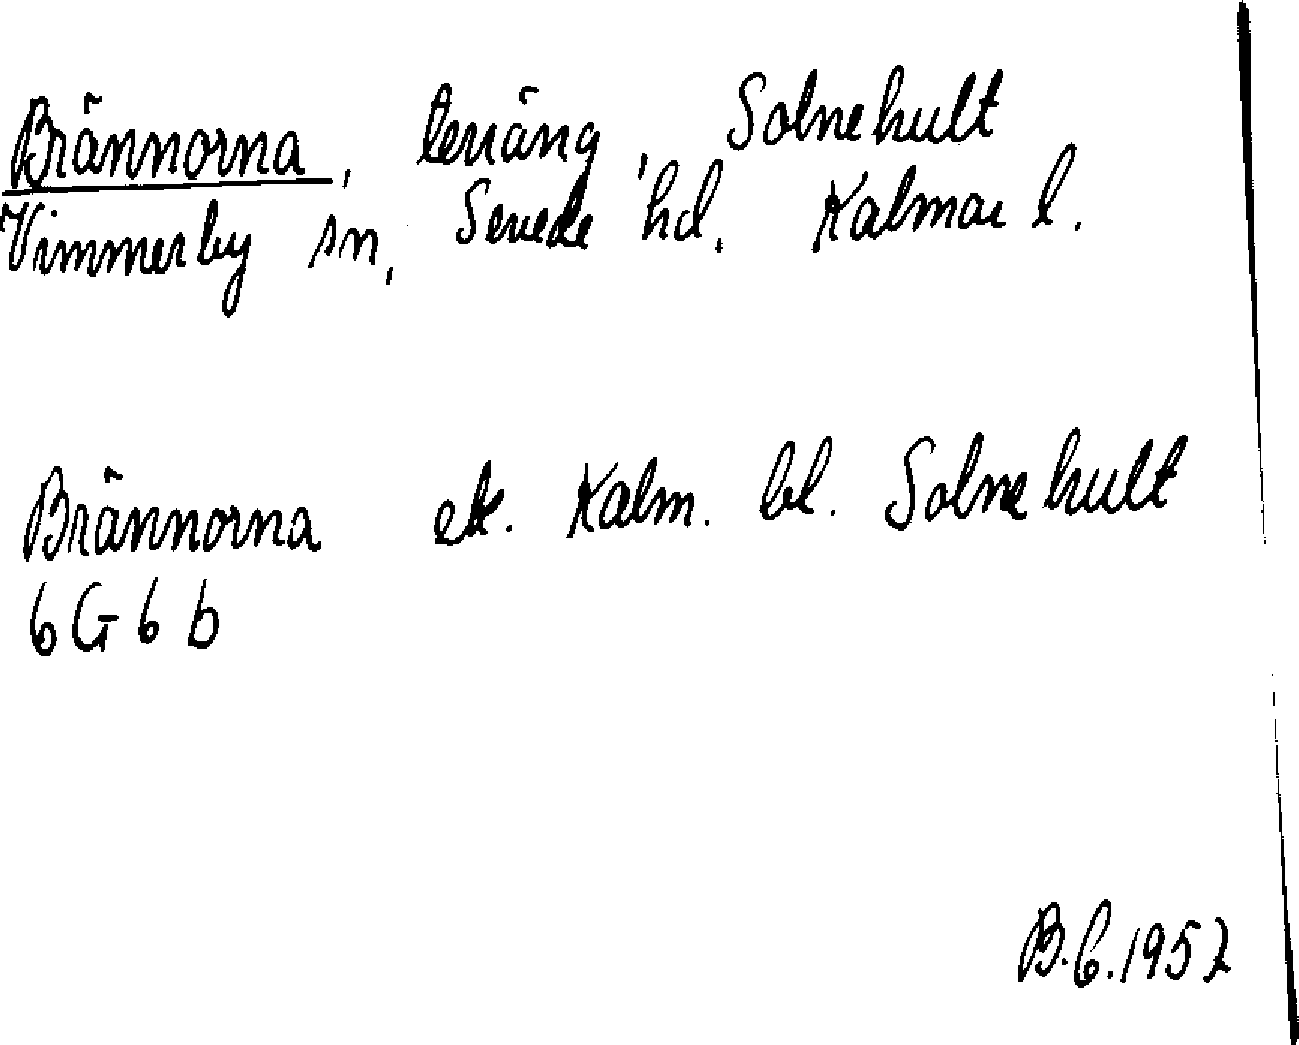 Brännorna, terräng, Solnehult
Vimmerby sn, Sevede hd. Kalmar l.
Brännorna ek. Kalm. bl. Solnehult
6G6b
B.C.1952